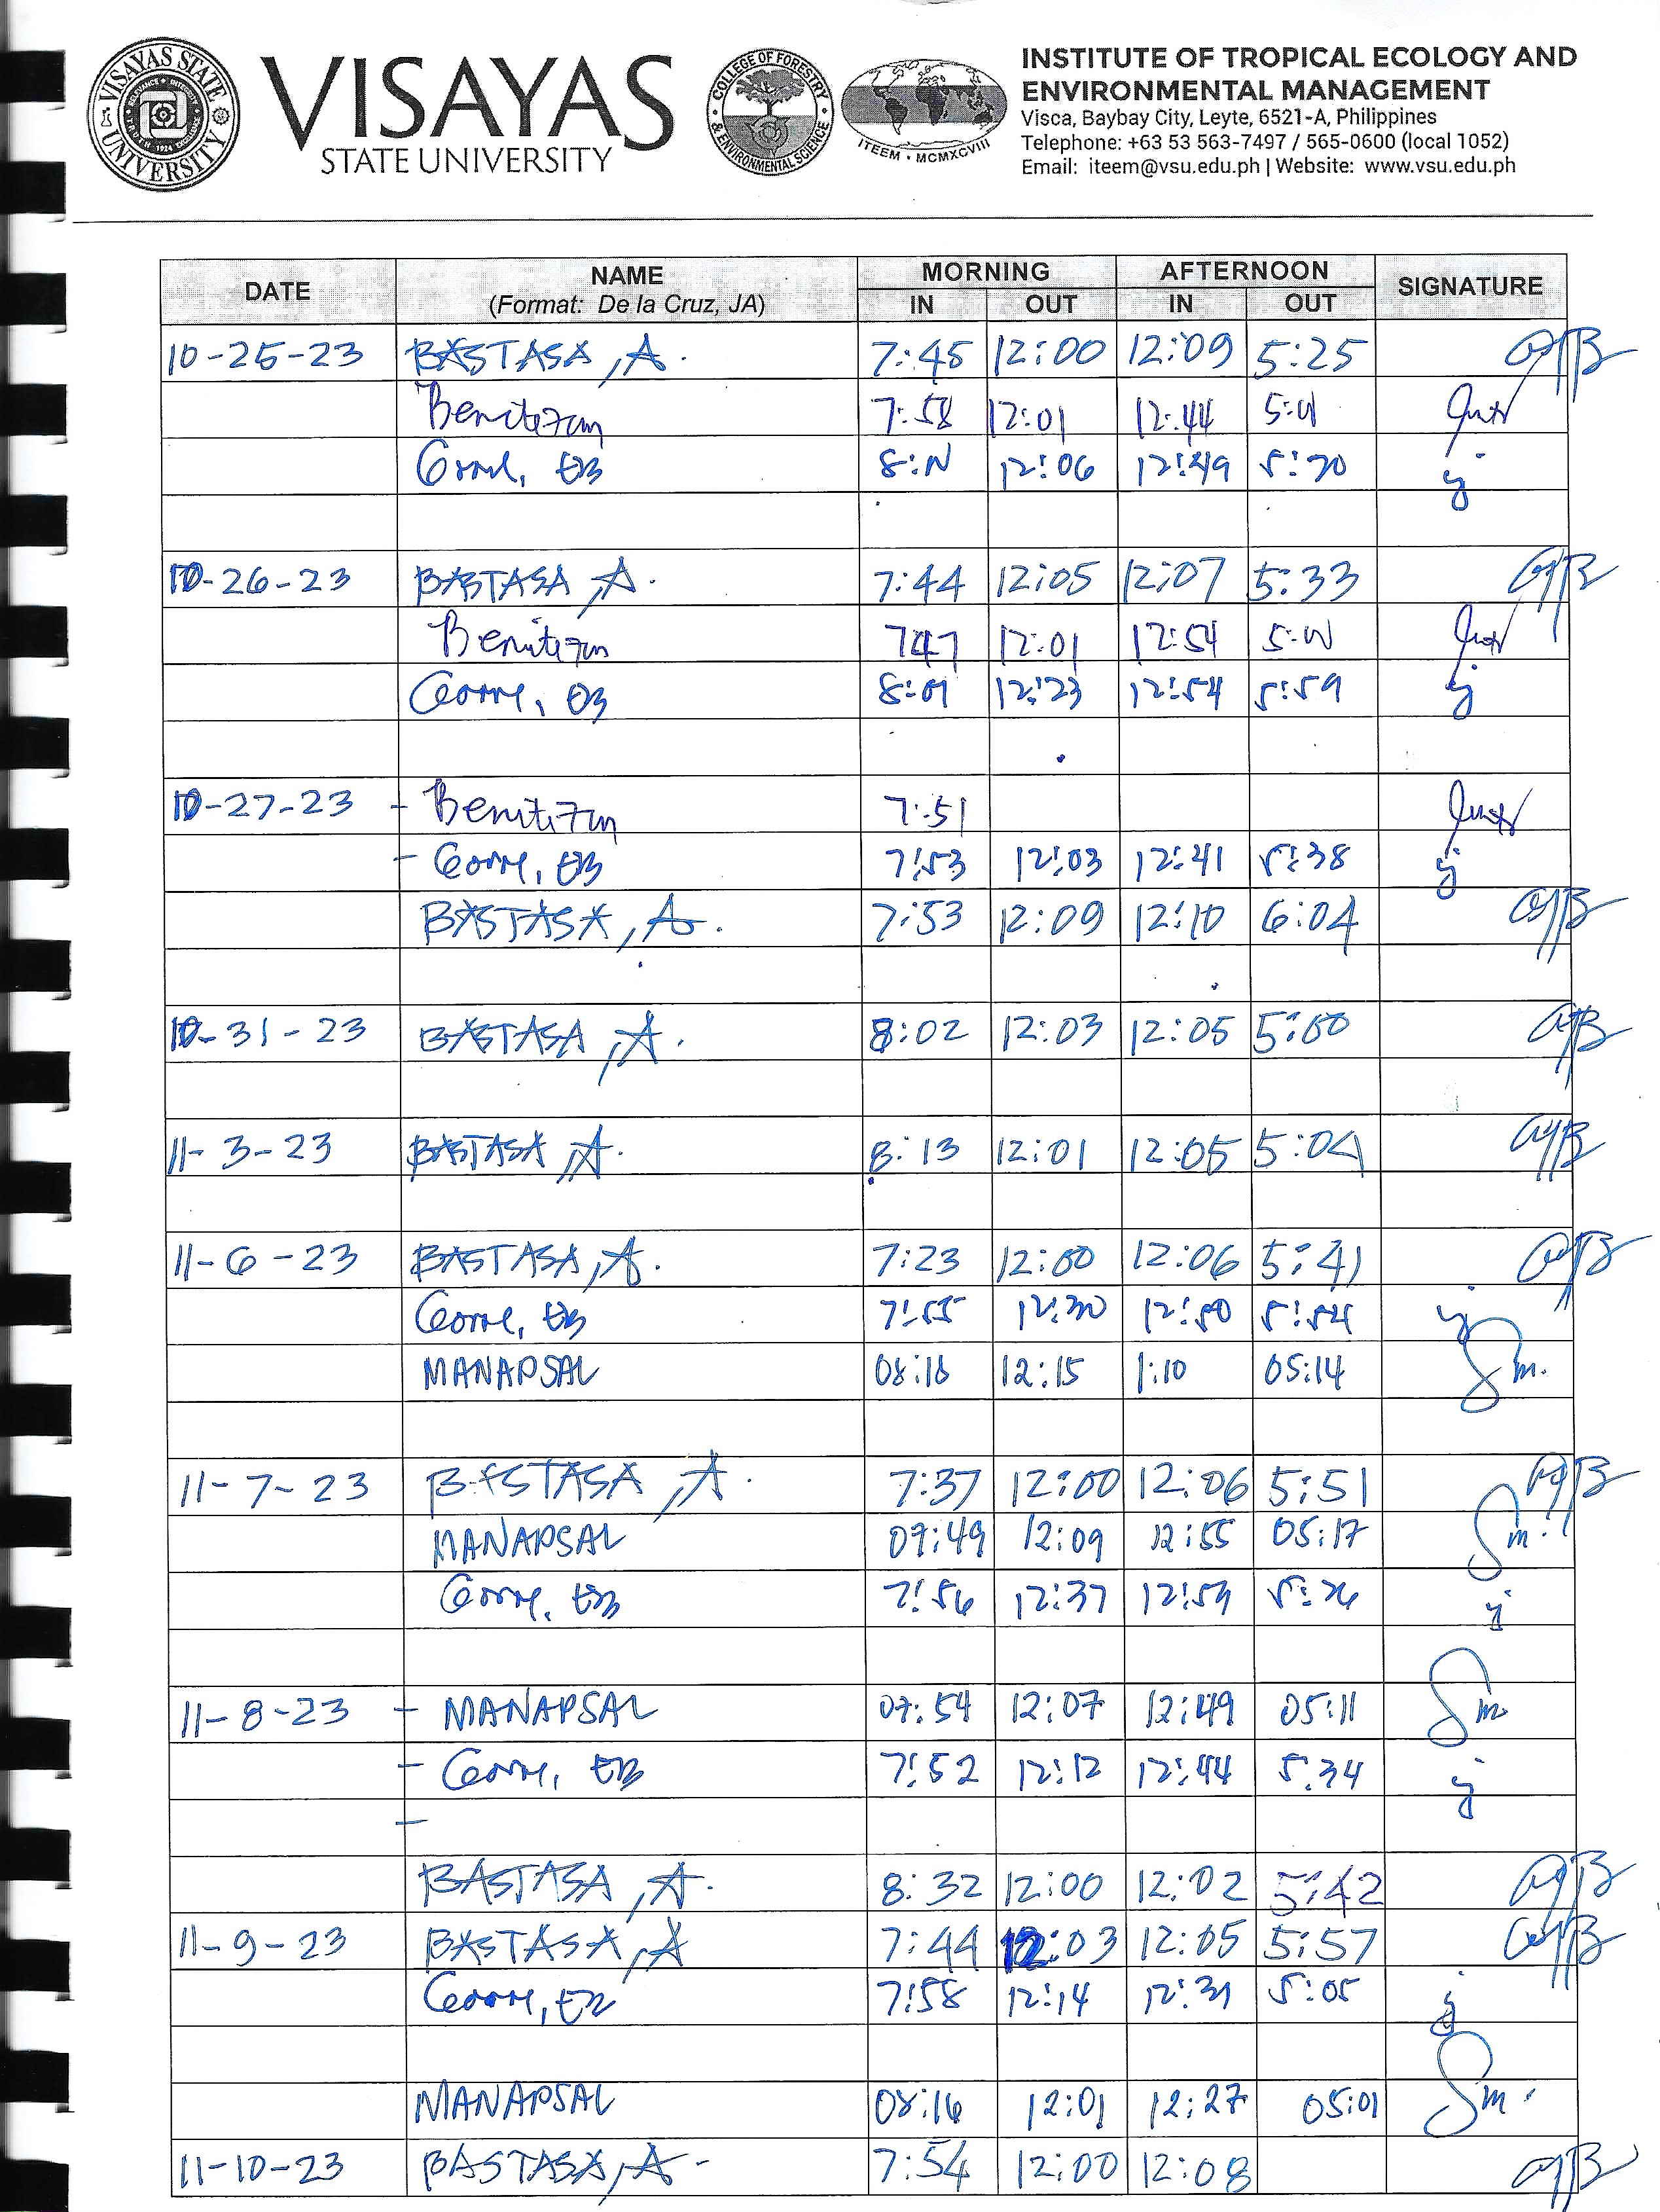 VISAYAS STATE UNIVERSITY
1924
VISAYAS
STATE UNIVERSITY
COLLEGE OF FORESTRY & ENVIRONMENTAL SCIENCE
ITEEM • MCMXCVIII
INSTITUTE OF TROPICAL ECOLOGY AND
ENVIRONMENTAL MANAGEMENT
Visca, Baybay City, Leyte, 6521-A, Philippines
Telephone: +63 53 563-7497 / 565-0600 (local 1052)
Email: iteem@vsu.edu.ph | Website: www.vsu.edu.ph
DATE NAME MORNING AFTERNOON SIGNATURE
(Format: De la Cruz, JA) IN OUT IN OUT
10-25-23 BASTASA, A. 7:45 12:00 12:09 5:25
7:58 12:01 12:44
12:06 12:49 5:30
10-26-23 BASTASA, A. 7:44 12:05 12:07 5:33
747 12:01 12:54
8:01 12:23 12:54 5:59
10-27-23 - 7:51
- 7:53 12:03 12:41 5:38
BASTASA, A. 7:53 12:09 12:10 6:04
10-31-23 BASTASA, A. 8:02 12:03 12:05 5:00
11-3-23 BASTASA, A. 8:13 12:01 12:05 5:04
11-6-23 BASTASA, A. 7:23 12:00 12:06 5:41
7:55 12:30 12:50 5:54
MANAPSAL 08:18 12:15 1:10 05:14
11-7-23 BASTASA, A. 7:37 12:00 12:06 5:51
MANAPSAL 07:49 12:09 12:55 05:17
7:56 12:37 12:59 5:26
11-8-23 - MANAPSAL 07:54 12:07 12:49 05:11
- 7:52 12:12 12:44 5:34
-
BASTASA, A. 8:32 12:00 12:02 5:42
11-9-23 BASTASA, A 7:44 12:03 12:05 5:57
7:58 12:14 12:31 5:05
MANAPSAL 08:16 12:01 12:27 05:01
11-10-23 BASTASA, A- 7:54 12:00 12:08